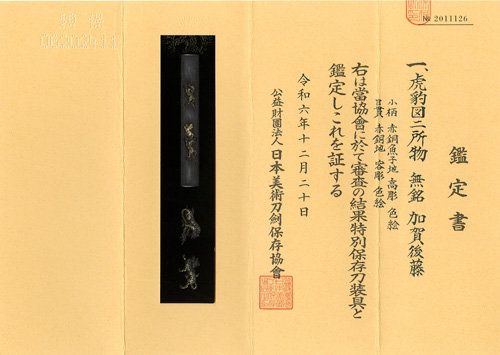 № 2011126
鑑定書
一、虎豹図二所物 無銘 加賀後藤
小柄 赤銅魚子地 高彫 色絵
目貫 赤銅地 容彫 色絵
右は當協會に於て審査の結果特別保存刀装具と
鑑定しこれを証する
令和六年十二月二十日
公益財團法人 日本美術刀劍保存協會